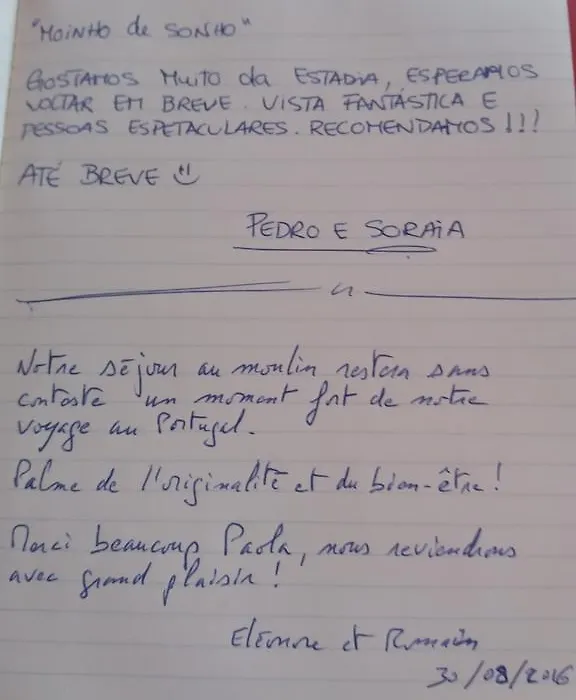 "MOINHO de SONHO"
GOSTAMOS MUITO da ESTADIA, ESPERAMOS
VOLTAR EM BREVE. VISTA FANTÁSTICA E
PESSOAS ESPETACULARES. RECOMENDAMOS!!!
ATÉ BREVE
PEDRO E SORAIA
Notre séjour au moulin restera sans
conteste un moment fort de notre
voyage au Portugal.
Palme de l'originalité et du bien-être!
Merci beaucoup Paola, nous reviendrons
avec grand plaisir!
Eléonore et Romain
30/08/2016